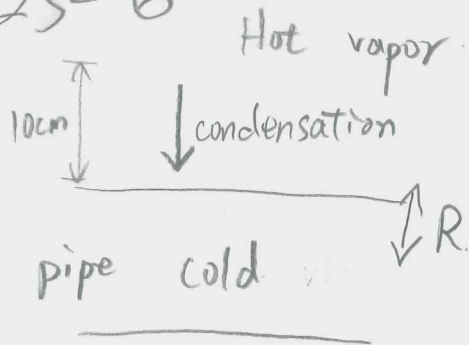 Hot vapor
10cm
condensation
R.
pipe cold